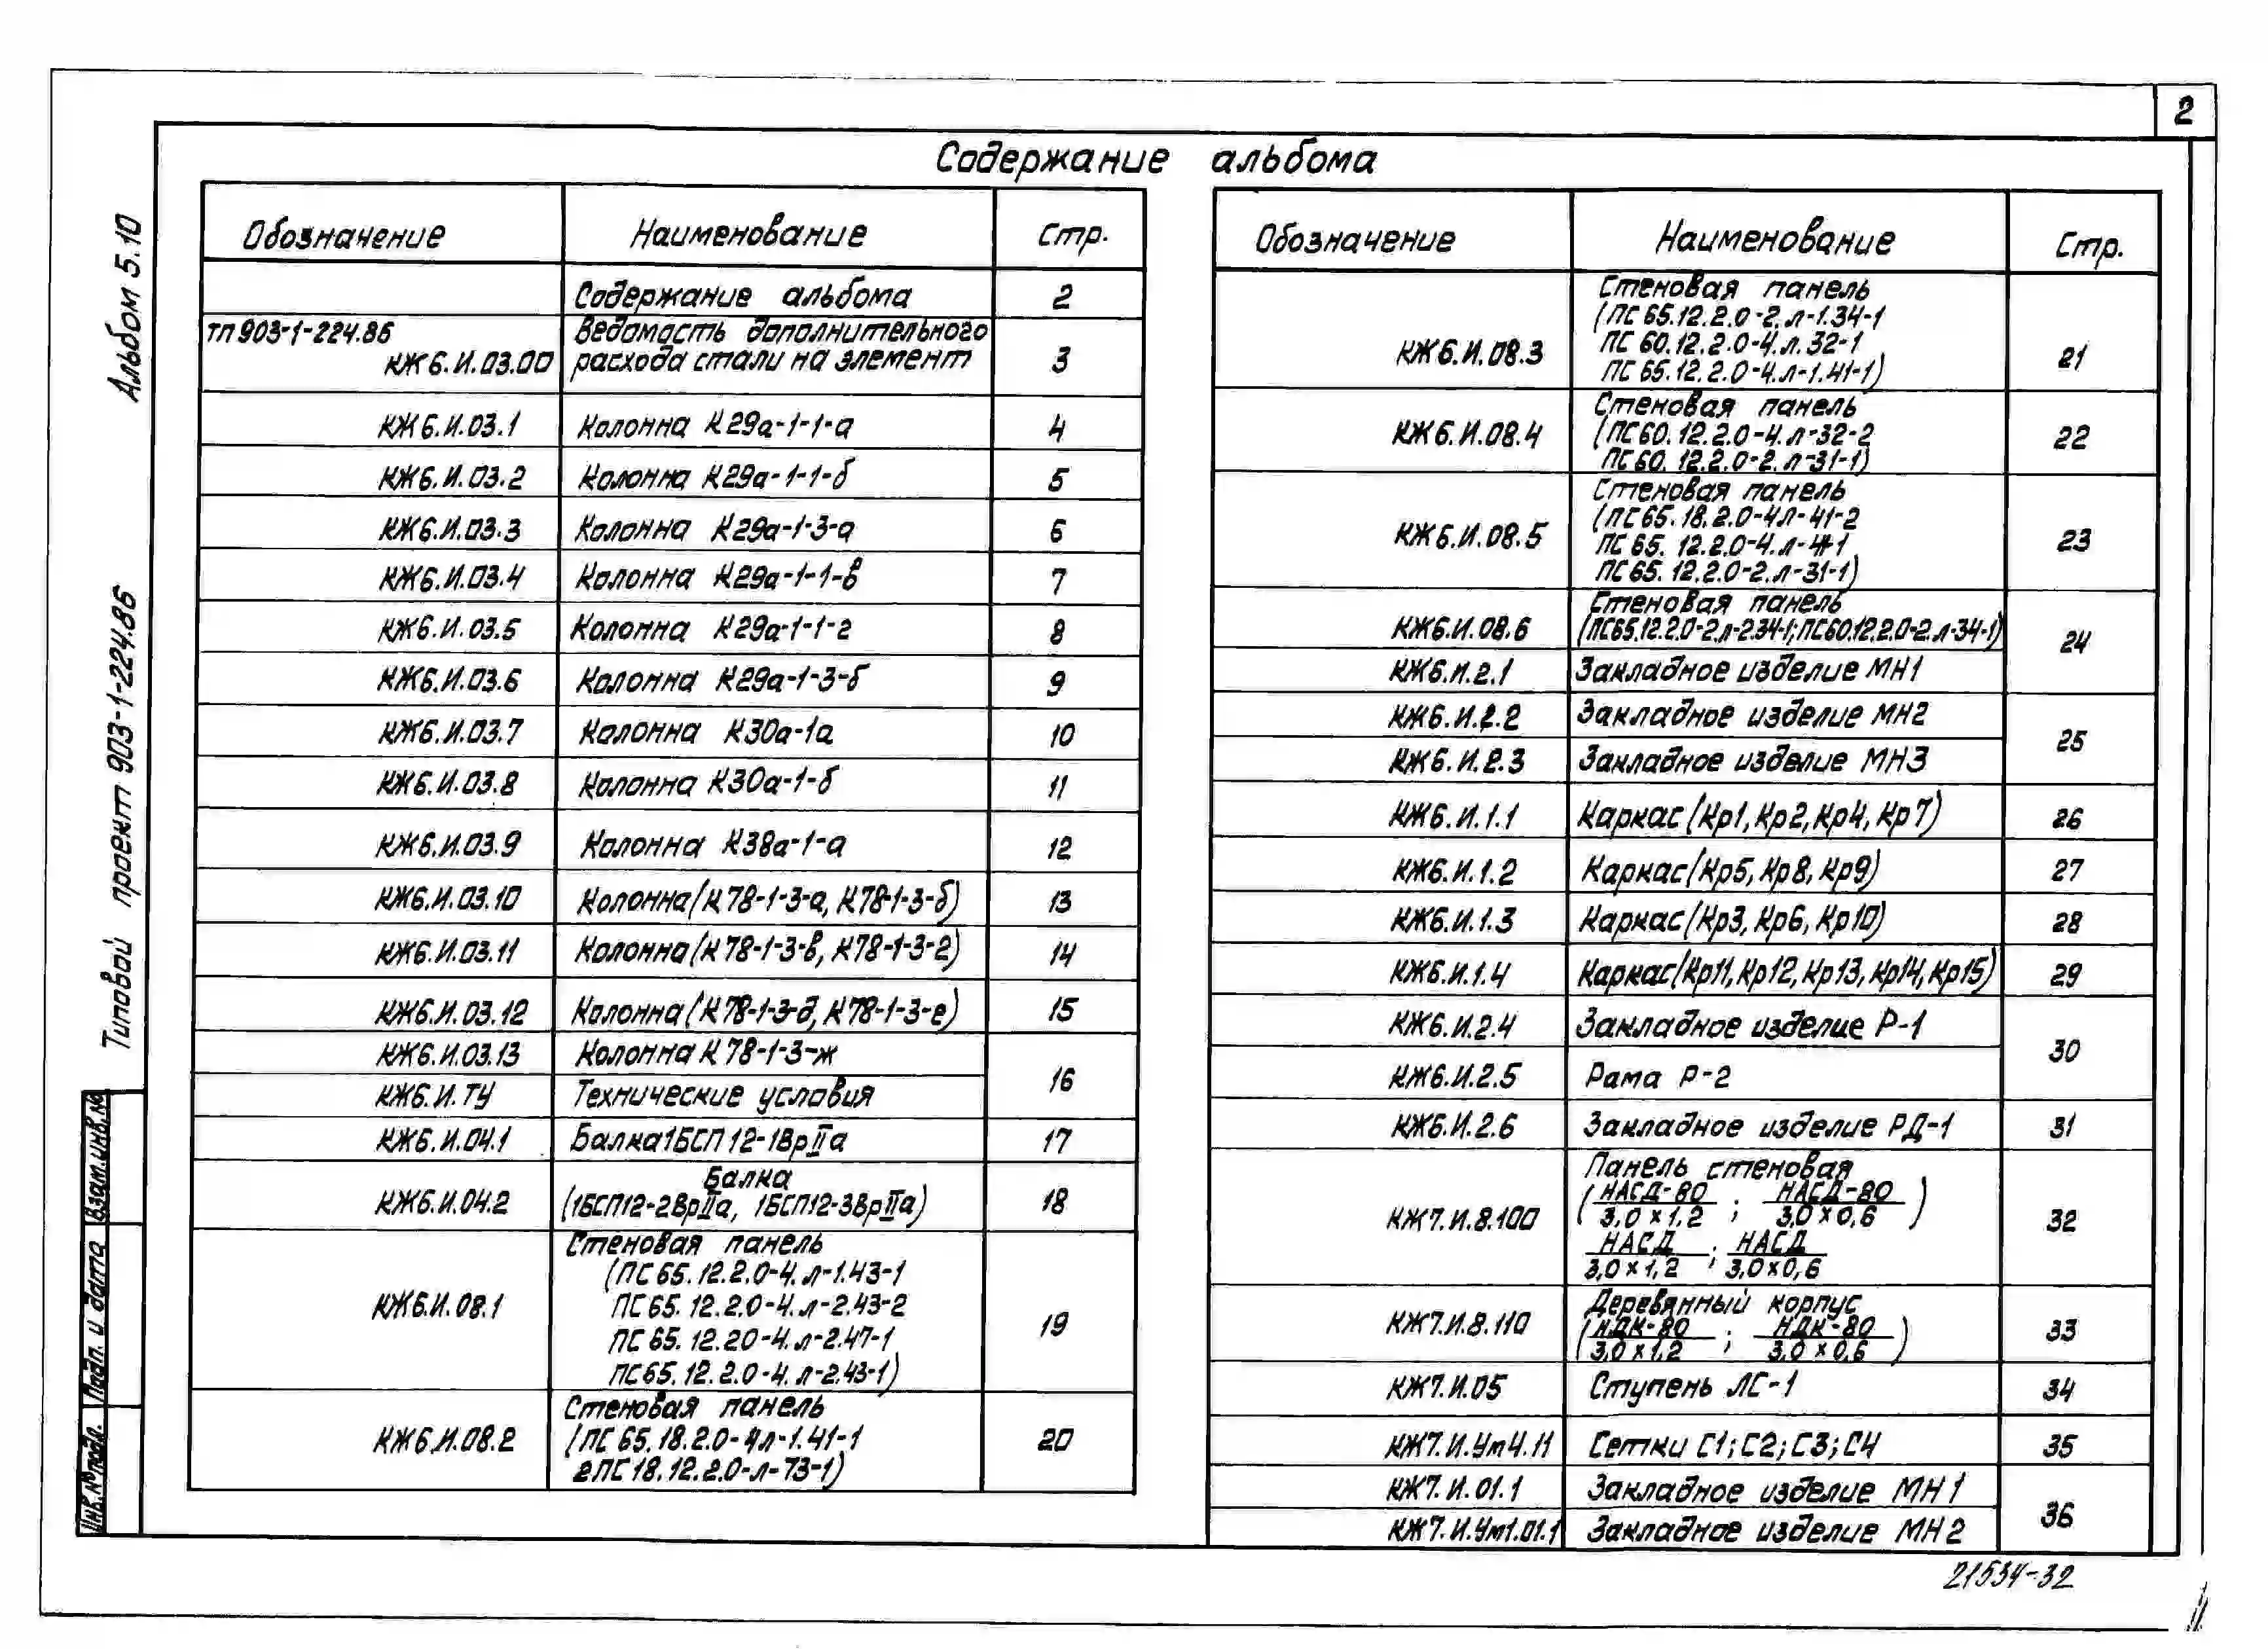 2
Содержание альбома
Альбом 5.10
Типовой проект 903-1-224.86
Взам.инв.№
Подп. и дата
Инв.№подл.
Обозначение Наименование Стр.
Содержание альбома 2
ТП903-1-224.86 Ведомость дополнительного
КЖ6.И.03.00 расхода стали на элемент 3
КЖ6.И.03.1 Колонна К29а-1-1-а 4
КЖ6.И.03.2 Колонна К29а-1-1-б 5
КЖ6.И.03.3 Колонна К29а-1-3-а 6
КЖ6.И.03.4 Колонна К29а-1-1-в 7
КЖ6.И.03.5 Колонна К29а-1-1-г 8
КЖ6.И.03.6 Колонна К29а-1-3-б 9
КЖ6.И.03.7 Колонна К30а-1а 10
КЖ6.И.03.8 Колонна К30а-1-б 11
КЖ6.И.03.9 Колонна К38а-1-а 12
КЖ6.И.03.10 Колонна(К78-1-3-а, К78-1-3-б) 13
КЖ6.И.03.11 Колонна(К78-1-3-в, К78-1-3-г) 14
КЖ6.И.03.12 Колонна(К78-1-3-д, К78-1-3-е) 15
КЖ6.И.03.13 Колонна К78-1-3-ж
16
КЖ6.И.ТУ Технические условия
КЖ6.И.04.1 Балка1БСП12-1ВрIIа 17
Балка
КЖ6.И.04.2 (1БСП12-2ВрIIа, 1БСП12-3ВрIIа) 18
Стеновая панель
(ПС65.12.2.0-4.л-1.43-1
КЖ6.И.08.1 ПС65.12.2.0-4.л-2.43-2 19
ПС65.12.20-4.л-2.47-1
ПС65.12.2.0-4.л-2.43-1)
Стеновая панель
КЖ6.И.08.2 (ПС65.18.2.0-4л-1.41-1 20
2ПС18.12.2.0-л-73-1)
Обозначение Наименование Стр.
Стеновая панель
(ПС65.12.2.0-2.л-1.34-1
КЖ6.И.08.3 ПС60.12.2.0-4.л.32-1 21
ПС65.12.2.0-4.л-1.41-1)
Стеновая панель
КЖ6.И.08.4 (ПС60.12.2.0-4.л-32-2 22
ПС60.12.2.0-2.л-31-1)
Стеновая панель
(ПС65.18.2.0-4л-41-2
КЖ6.И.08.5 ПС65.12.2.0-4.л- 23
ПС65.12.2.0-2.л-31-1)
Стеновая панель
КЖ6.И.08.6 (ПС65.12.2.0-2.л-2.34-1;ПС60.12.2.0-2.л-34-1)
24
КЖ6.И.2.1 Закладное изделие МН1
КЖ6.И.2.2 Закладное изделие МН2
25
КЖ6.И.2.3 Закладное изделие МН3
КЖ6.И.1.1 Каркас(Кр1,Кр2,Кр4,Кр7) 26
КЖ6.И.1.2 Каркас(Кр5,Кр8,Кр9) 27
КЖ6.И.1.3 Каркас(Кр3,Кр6,Кр10) 28
КЖ6.И.1.4 Каркас(Кр11,Кр12,Кр13,Кр14,Кр15) 29
КЖ6.И.2.4 Закладное изделие Р-1
30
КЖ6.И.2.5 Рама Р-2
КЖ6.И.2.6 Закладное изделие РД-1 31
Панель стеновая
(НАСД-80 ; НАСД-80)
КЖ7.И.8.100 3,0х1,2 3,0х0,6 32
НАСД ; НАСД
3,0х1,2 3,0х0,6
Деревянный корпус
КЖ7.И.8.110 (НДК-80 ; НДК-80) 33
3,0х1,2 3,0х0,6
КЖ7.И.05 Ступень ЛС-1 34
КЖ7.И.Ум4.11 Сетки С1;С2;С3;С4 35
КЖ7.И.01.1 Закладное изделие МН1
36
КЖ7.И.Ум1.01.1 Закладное изделие МН2
21534-32